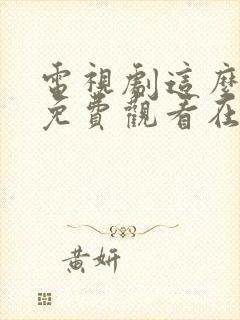 電視劇這麼
免費觀看在
黃妍